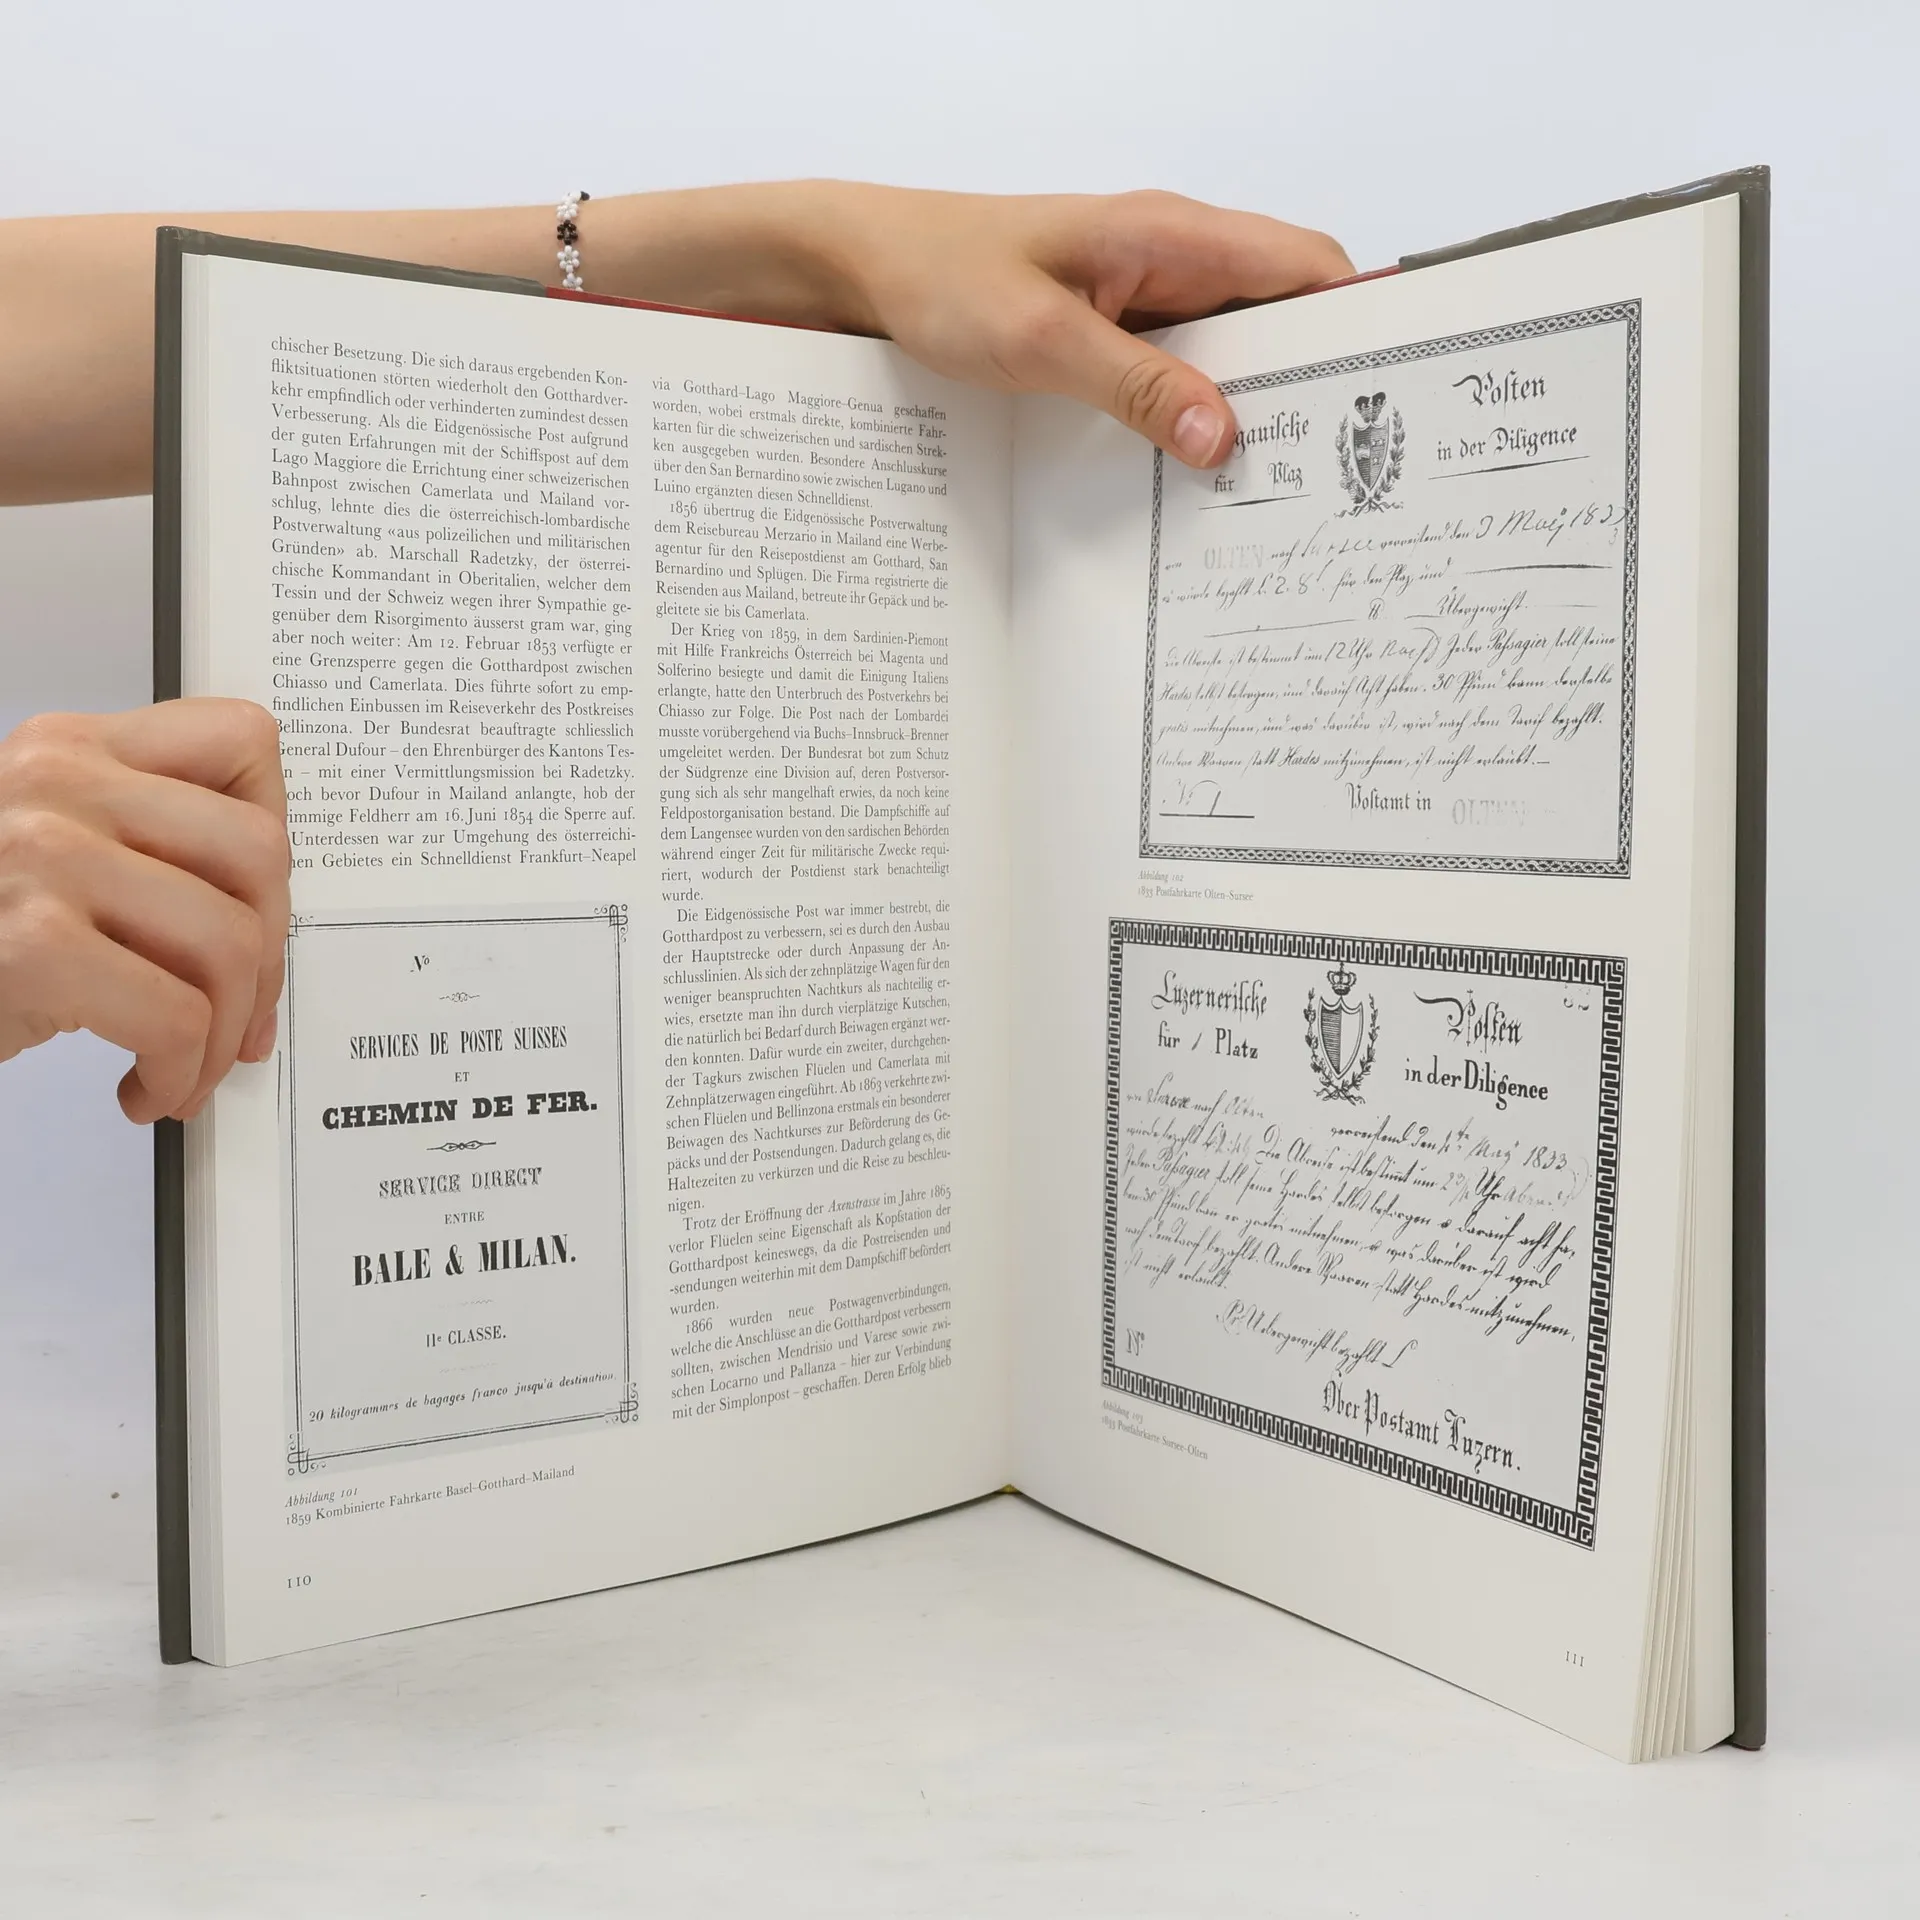 chischer Besetzung. Die sich daraus ergebenden Kon-
fliktsituationen störten wiederholt den Gotthardver-
kehr empfindlich oder verhinderten zumindest dessen
Verbesserung. Als die Eidgenössische Post aufgrund
der guten Erfahrungen mit der Schiffspost auf dem
Lago Maggiore die Errichtung einer schweizerischen
Bahnpost zwischen Camerlata und Mailand vor-
schlug, lehnte dies die österreichisch-lombardische
Postverwaltung «aus polizeilichen und militärischen
Gründen» ab. Marschall Radetzky, der österrei-
chische Kommandant in Oberitalien, welcher dem
Tessin und der Schweiz wegen ihrer Sympathie ge-
genüber dem Risorgimento äusserst gram war, ging
aber noch weiter: Am 12. Februar 1853 verfügte er
eine Grenzsperre gegen die Gotthardpost zwischen
Chiasso und Camerlata. Dies führte sofort zu emp-
findlichen Einbussen im Reiseverkehr des Postkreises
Bellinzona. Der Bundesrat beauftragte schliesslich
General Dufour – den Ehrenbürger des Kantons Tes-
n – mit einer Vermittlungsmission bei Radetzky.
och bevor Dufour in Mailand anlangte, hob der
rimmige Feldherr am 16. Juni 1854 die Sperre auf.
Unterdessen war zur Umgehung des österreichi-
hen Gebietes ein Schnelldienst Frankfurt–Neapel
No
SERVICES DE POSTE SUISSES
ET
CHEMIN DE FER.
SERVICE DIRECT
ENTRE
BALE & MILAN.
IIe CLASSE.
20 kilogrammes de bagages franco jusqu'à destination.
Abbildung 101
1859 Kombinierte Fahrkarte Basel–Gotthard–Mailand
110
via Gotthard–Lago Maggiore–Genua geschaffen
worden, wobei erstmals direkte, kombinierte Fahr-
karten für die schweizerischen und sardischen Strek-
ken ausgegeben wurden. Besondere Anschlusskurse
über den San Bernardino sowie zwischen Lugano und
Luino ergänzten diesen Schnelldienst.
1856 übertrug die Eidgenössische Postverwaltung
dem Reisebureau Merzario in Mailand eine Werbe-
agentur für den Reisepostdienst am Gotthard, San
Bernardino und Splügen. Die Firma registrierte die
Reisenden aus Mailand, betreute ihr Gepäck und be-
gleitete sie bis Camerlata.
Der Krieg von 1859, in dem Sardinien-Piemont
mit Hilfe Frankreichs Österreich bei Magenta und
Solferino besiegte und damit die Einigung Italiens
erlangte, hatte den Unterbruch des Postverkehrs bei
Chiasso zur Folge. Die Post nach der Lombardei
musste vorübergehend via Buchs–Innsbruck–Brenner
umgeleitet werden. Der Bundesrat bot zum Schutz
der Südgrenze eine Division auf, deren Postversor-
gung sich als sehr mangelhaft erwies, da noch keine
Feldpostorganisation bestand. Die Dampfschiffe auf
dem Langensee wurden von den sardischen Behörden
während einger Zeit für militärische Zwecke requi-
riert, wodurch der Postdienst stark benachteiligt
wurde.
Die Eidgenössische Post war immer bestrebt, die
Gotthardpost zu verbessern, sei es durch den Ausbau
der Hauptstrecke oder durch Anpassung der An-
schlusslinien. Als sich der zehnplätzige Wagen für den
weniger beanspruchten Nachtkurs als nachteilig er-
wies, ersetzte man ihn durch vierplätzige Kutschen,
die natürlich bei Bedarf durch Beiwagen ergänzt wer-
den konnten. Dafür wurde ein zweiter, durchgehen-
der Tagkurs zwischen Flüelen und Camerlata mit
Zehnplätzerwagen eingeführt. Ab 1863 verkehrte zwi-
schen Flüelen und Bellinzona erstmals ein besonderer
Beiwagen des Nachtkurses zur Beförderung des Ge-
päcks und der Postsendungen. Dadurch gelang es, die
Haltezeiten zu verkürzen und die Reise zu beschleu-
nigen.
Trotz der Eröffnung der Axenstrasse im Jahre 1865
verlor Flüelen seine Eigenschaft als Kopfstation der
Gotthardpost keineswegs, da die Postreisenden und
-sendungen weiterhin mit dem Dampfschiff befördert
wurden.
1866 wurden neue Postwagenverbindungen,
welche die Anschlüsse an die Gotthardpost verbessern
sollten, zwischen Mendrisio und Varese sowie zwi-
schen Locarno und Pallanza – hier zur Verbindung
mit der Simplonpost – geschaffen. Deren Erfolg blieb
gauische Posten
für Plaz in der Diligence
von OLTEN nach Sursee verreisend den 3 May 1833
wurde bezahlt L. 2. 8 für den Plaz, und
Übergewicht.
Die Abreise ist bestimmt um 12 Uhr Jeder Passagier soll seine
Hardes selbst besorgen, und darauf Acht haben. 30 Pfund kann derselbe
gratis mitnehmen, und was darüber ist, wird nach dem Tarif bezahlt.
Andere Waaren statt Hardes mitzunehmen, ist nicht erlaubt.
No 1 Postamt in OLTEN
Abbildung 102
1833 Postfahrkarte Olten–Sursee
Luzernerische Posten
für 1 Platz in der Diligence
von Sursee nach Olten verreisend den May 1833
wurde bezahlt Die Abreise ist bestimmt um Uhr
Jeder Passagier soll seine Hardes selbst besorgen u darauf acht ha,
ben 30 Pfund kan er gratis mitnehmen, u was darüber ist wird
nach dem tarif bezahlt. Andere Waaren statt Hardes mitzunehmen,
ist nicht erlaubt.
Pr Uebergewicht bezahlt
No
Ober Postamt Luzern.
Abbildung 103
1833 Postfahrkarte Sursee–Olten
111